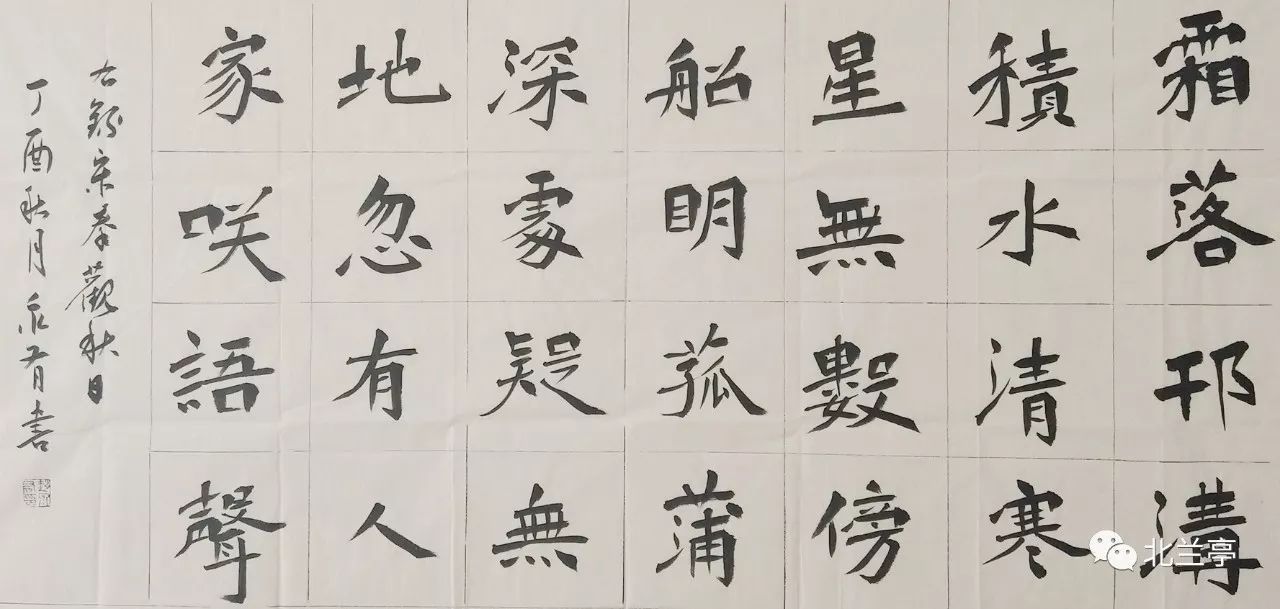 霜落邗溝
積水清寒
星無數傍
船明菰蒲
深處疑無
地忽有人
家咲語聲
右錄宋秦觀秋日
丁酉秋月 有書
北兰亭